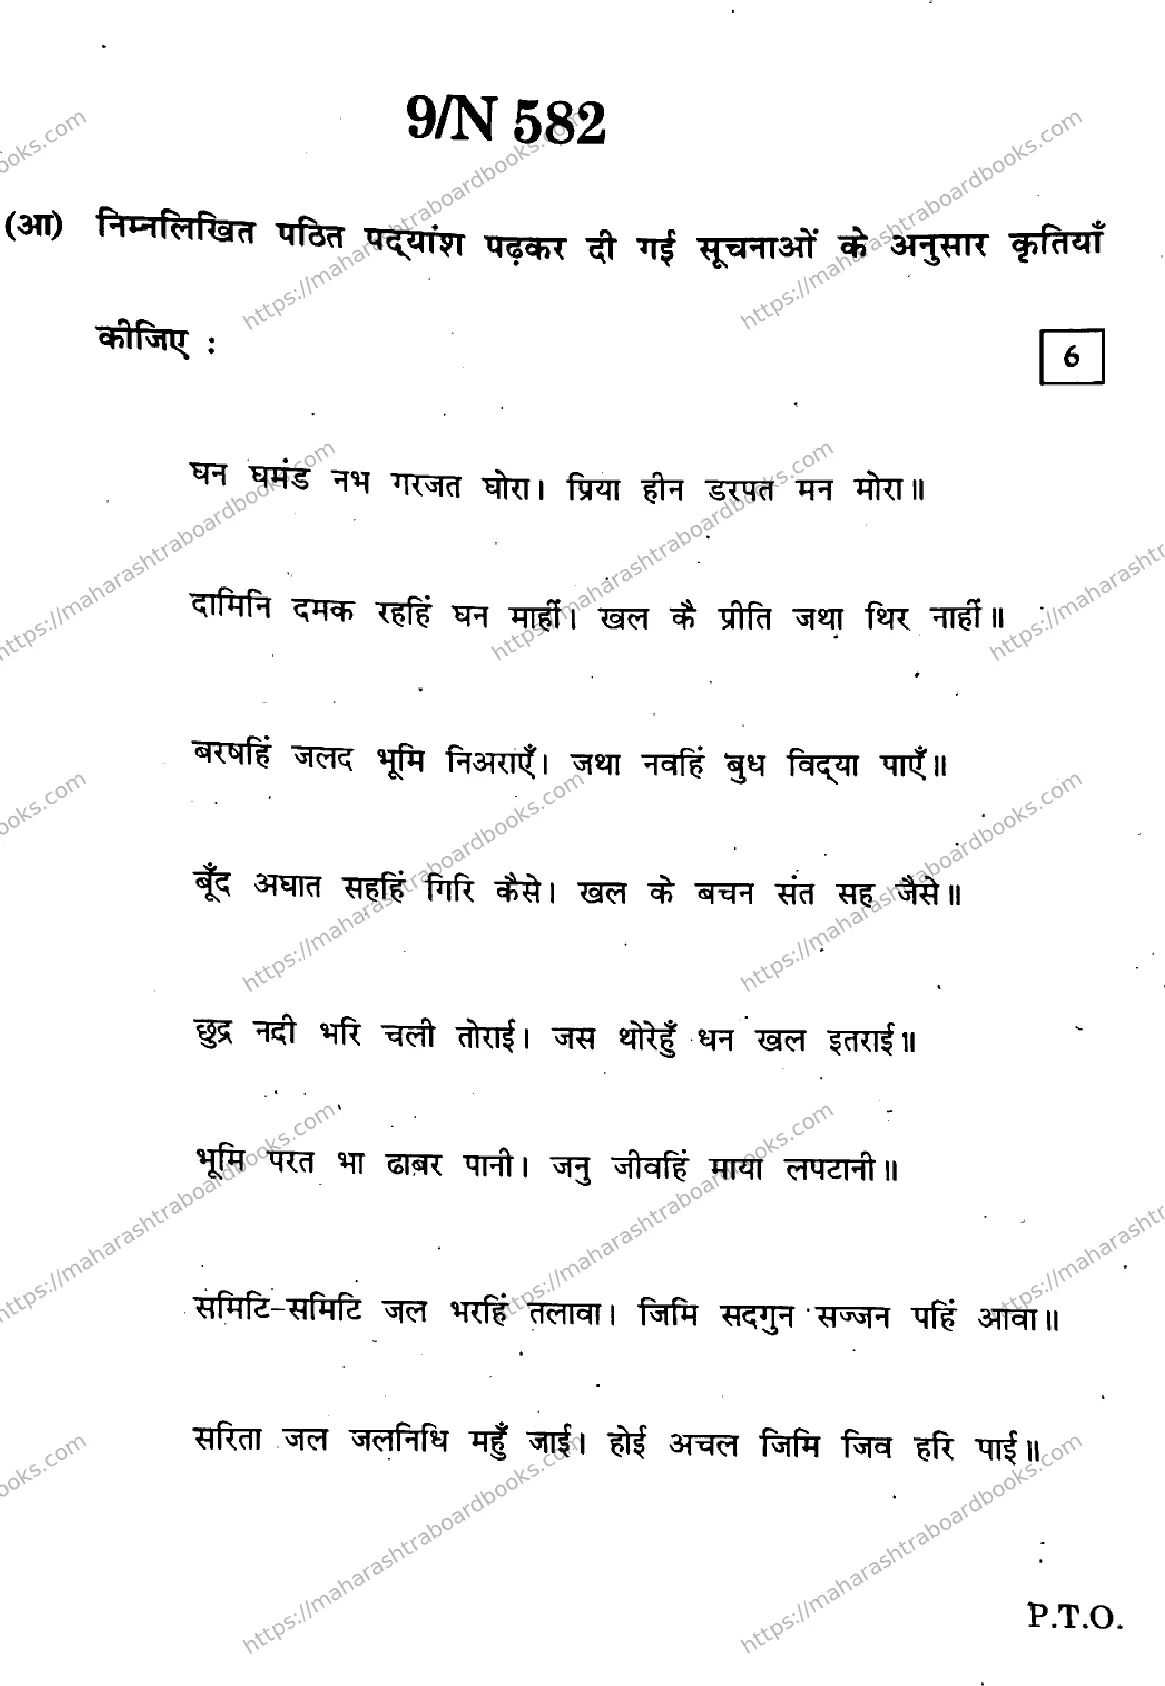 9/N 582
(आ) निम्नलिखित पठित पद्‌यांश पढ़कर दी गई सूचनाओं के अनुसार कृतियाँ
कीजिए :
6
घन घमंड नभ गरजत घोरा। प्रिया हीन डरपत मन मोरा॥
दामिनि दमक रहहिं घन माहीं। खल कै प्रीति जथा थिर नाहीं॥
बरषहिं जलद भूमि निअराएँ। जथा नवहिं बुध विद्‌या पाएँ॥
बूँद अघात सहहिं गिरि कैसे। खल के बचन संत सह जैसे॥
छुद्र नदी भरि चली तोराई। जस थोरेहुँ धन खल इतराई॥
भूमि परत भा ढाबर पानी। जनु जीवहिं माया लपटानी॥
समिटि-समिटि जल भरहिं तलावा। जिमि सदगुन सज्जन पहिं आवा॥
सरिता जल जलनिधि महुँ जाई। होई अचल जिमि जिव हरि पाई॥
P.T.O.
https://maharashtraboardbooks.com